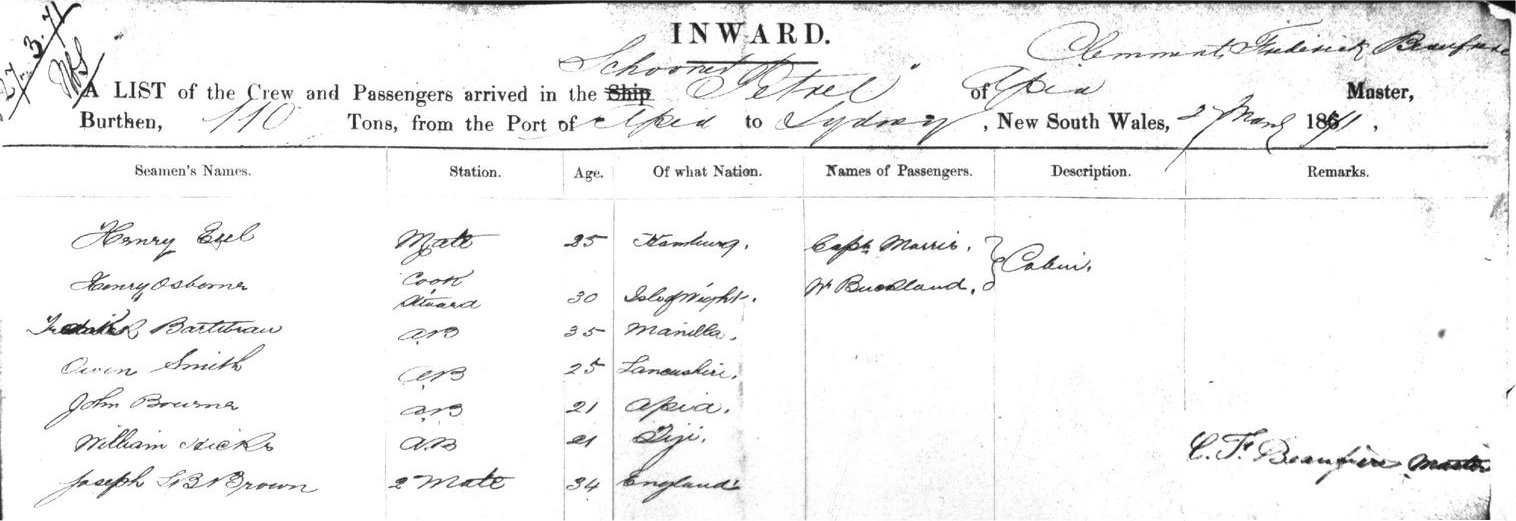 27.3.71
INWARD.
Schooner Clemmont Frederick
A LIST of the Crew and Passengers arrived in the Ship "Petrel" of Apia Master,
Burthen, 110 Tons, from the Port of Apia to Sydney, New South Wales, 27 March 1871,
Seamen's Names. Station. Age. Of what Nation. Names of Passengers. Description. Remarks.
Henry Esel Mate 25 Hamburg. Capt Morris. Cabin.
Henry Osborne Cook Steward 30 Isle of Wight. W Buckland.
AB 35 Manilla.
Owen Smith AB 25 Lancashire.
John Bourne AB 21 Apia.
William Hicks AB 21 Fiji.
Joseph Brown 2 Mate 34 England
C. F. Master